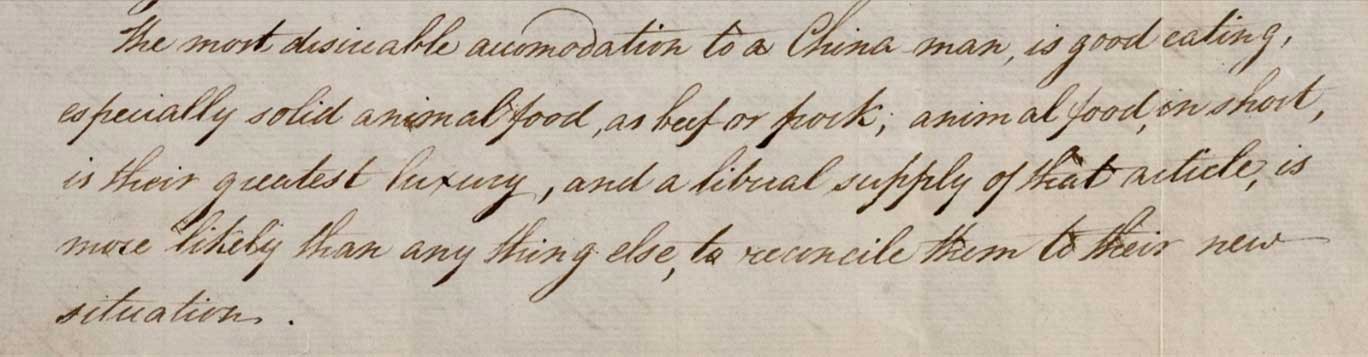 The most desireable accomodation to a China man, is good eating,
especially solid animal food, as beef or pork; animal food, in short,
is their greatest luxury, and a liberal supply of that article, is
more likely than any thing else, to reconcile them to their new
situation.